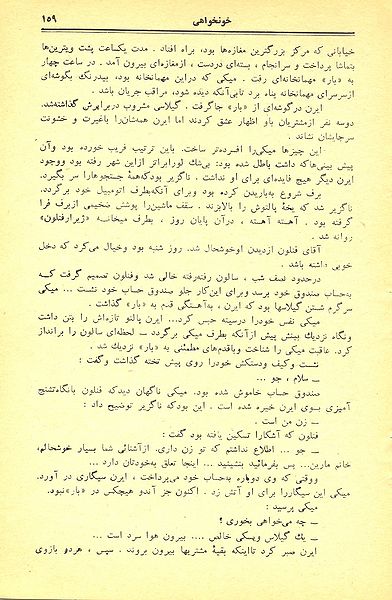 خونخواهی ۱۵۹
خیابانی که مرکز بزرگترین مغازه‌ها بود، براه افتاد . مدت یکساعت پشت ویترین‌ها
بتماشا پرداخت و سرانجام ، بسته‌ای دردست ، ازمغازه‌ای بیرون آمد . در ساعت چهار
به «بار» مهمانخانه‌ای رفت . میکی که دراین مهمانخانه بود، بیدرنگ بگوشه‌ای
ازسرسرای مهمانخانه پناه برد تابی‌آنکه دیده شود، مراقب جریان باشد .
ایرن درگوشه‌ای از «بار» جاگرفت . گیلاسی مشروب دربرابرش گذاشته‌شد.
دوسه نفر ازمشتریان باو اظهار عشق کردند اما ایرن همه‌شان‌را باغیرت و خشونت
سرجایشان نشاند .
این چیزها میکی‌را افسرده‌تر ساخت. باین ترتیب فریب خورده بود وآن
پیش بینی‌هاکه داشت باطل شده بود: بی‌شك لوربراتر ازاین شهر رفته بود ووجود
ایرن دیگر هیچ فایده‌ای برای او نداشت ، ناگزیر بودکه‌همهٔ جستجوهارا سر بگیرد.
برف شروع به‌باریدن کرده بود وبرای آنکه‌بطرف اتومبیل خود برگردد.
ناگزیر شد که یخهٔ پالتوش را بالابزند . سقف ماشین‌را پوشش ضخیمی ازبرف فرا
گرفته بود . آهسته آهسته ، درآن پایان روز ، بطرف میخانـه «زیرارفنلون»
روانه شد .
آقای فنلون ازدیدن اوخوشحال شد. روز شنبه بود وخیال می‌کرد که دخل
خوبی داشته باشد .
درحدود نصف شب ، سالون رفته‌رفته خالی شد وفنلون تصمیم گرفت کـه
به‌حساب صندوق خود برسد وبرای این‌کار جلو صندوق حساب خود نشست ... میکی
سرگرم شستن گیلاسها بود که ایرن ، به‌آهستگی قدم به «بار» گذاشت .
میکی نفس خودرا درسینه حبس کرد... ایرن پالتو تازه‌اش را بتن داشت
ونگاه نزدیك بینش پیش ازآنکه بطرف میکی برگردد ـ لحظه‌ای سالون را برانداز
کرد. عاقبت میکی را شناخت وباقدم‌های مطمئنی به «بار» نزدیك شد .
نشست وکیف ودستکش خودرا روی پیش تخته گذاشت وگفت :
ـ سلام ، جو ...
صندوق حساب خاموش شده بود. میکی ناگهان دیدکه فنلون بانگاه‌تشنج
آمیزی بـوی ایرن خیره شده است . این بودکه ناگزیر توضیح داد :
ـ زن من است .
فنلون که آشکارا تسکین یافته بود گفت :
ـ جو ... اطلاع نداشتم که تو زن داری. ازآشنائی شما بسیار خوشحالم،
خانم مارین... پس بفرمائید بنشینید ... اینجا تعلق به‌خودتان دارد ...
ووقتی که وی دوباره به‌حساب خود می‌پرداخت ، ایرن سیگاری در آورد.
میکی این سیگاررا برای او آتش زد . اکنون جز آندو هیچکس در «بار»نبود.
میکی پرسید :
ـ چه می‌خواهی بخوری ؟
ـ یك گیلاس ویسکی خالص .... بیرون هوا سرد است ...
ایرن صبر کرد تااینکه بقیهٔ مشتریها بیرون بروند . سپس ، هردو بازوی